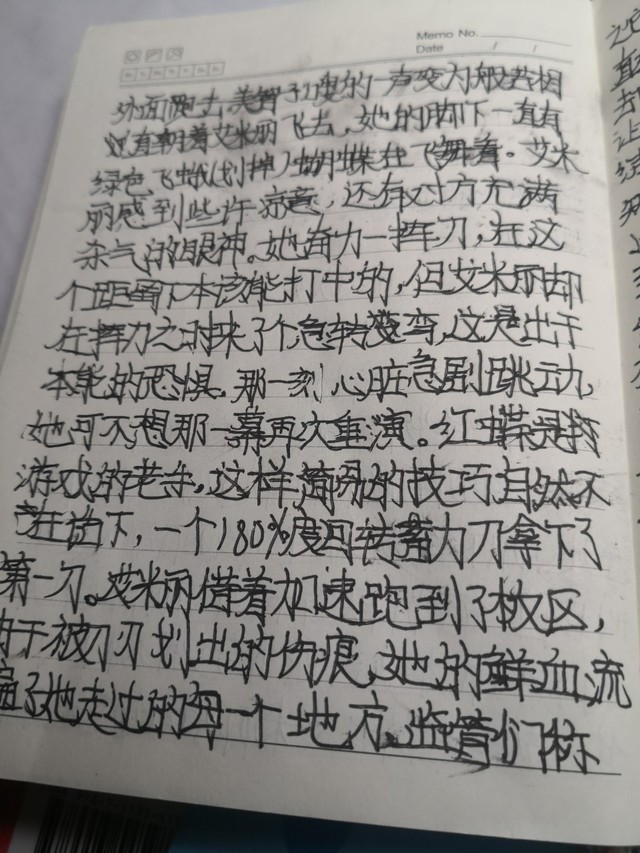 Memo No.
Date / /
外面跑去,美智子嗖的一声变为般若相
过直朝着艾米丽飞去,她的脚下一直有
绿色飞蛾(划掉)蝴蝶在飞舞着。艾米
丽感到些许凉意,还有对方充满
杀气的眼神。她奋力一挥刀,在这
个距离下本该能打中的,但艾米丽却
在挥刀之时来了个急转弯,这是出于
本能的恐惧,那一刻心脏急剧跳动,
她可不想那一幕再次重演。红蝶是打
游戏的老手,这样简易的技巧自然不
在话下,一个180%度回转蓄力刀拿下了
第一刀。艾米丽借着加速跑到了板区,
由于被刀刃划出的伤痕,她的鲜血流
遍了她走过的每一个地方,监管们称